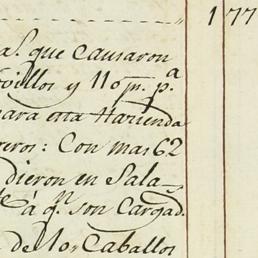 177
as. que Causaron
ovillos y 110 pr. pa
para esta Hazienda
reros: Con mas 62
dieron en Sala-
á qe. son Cargad.
de los Caballos